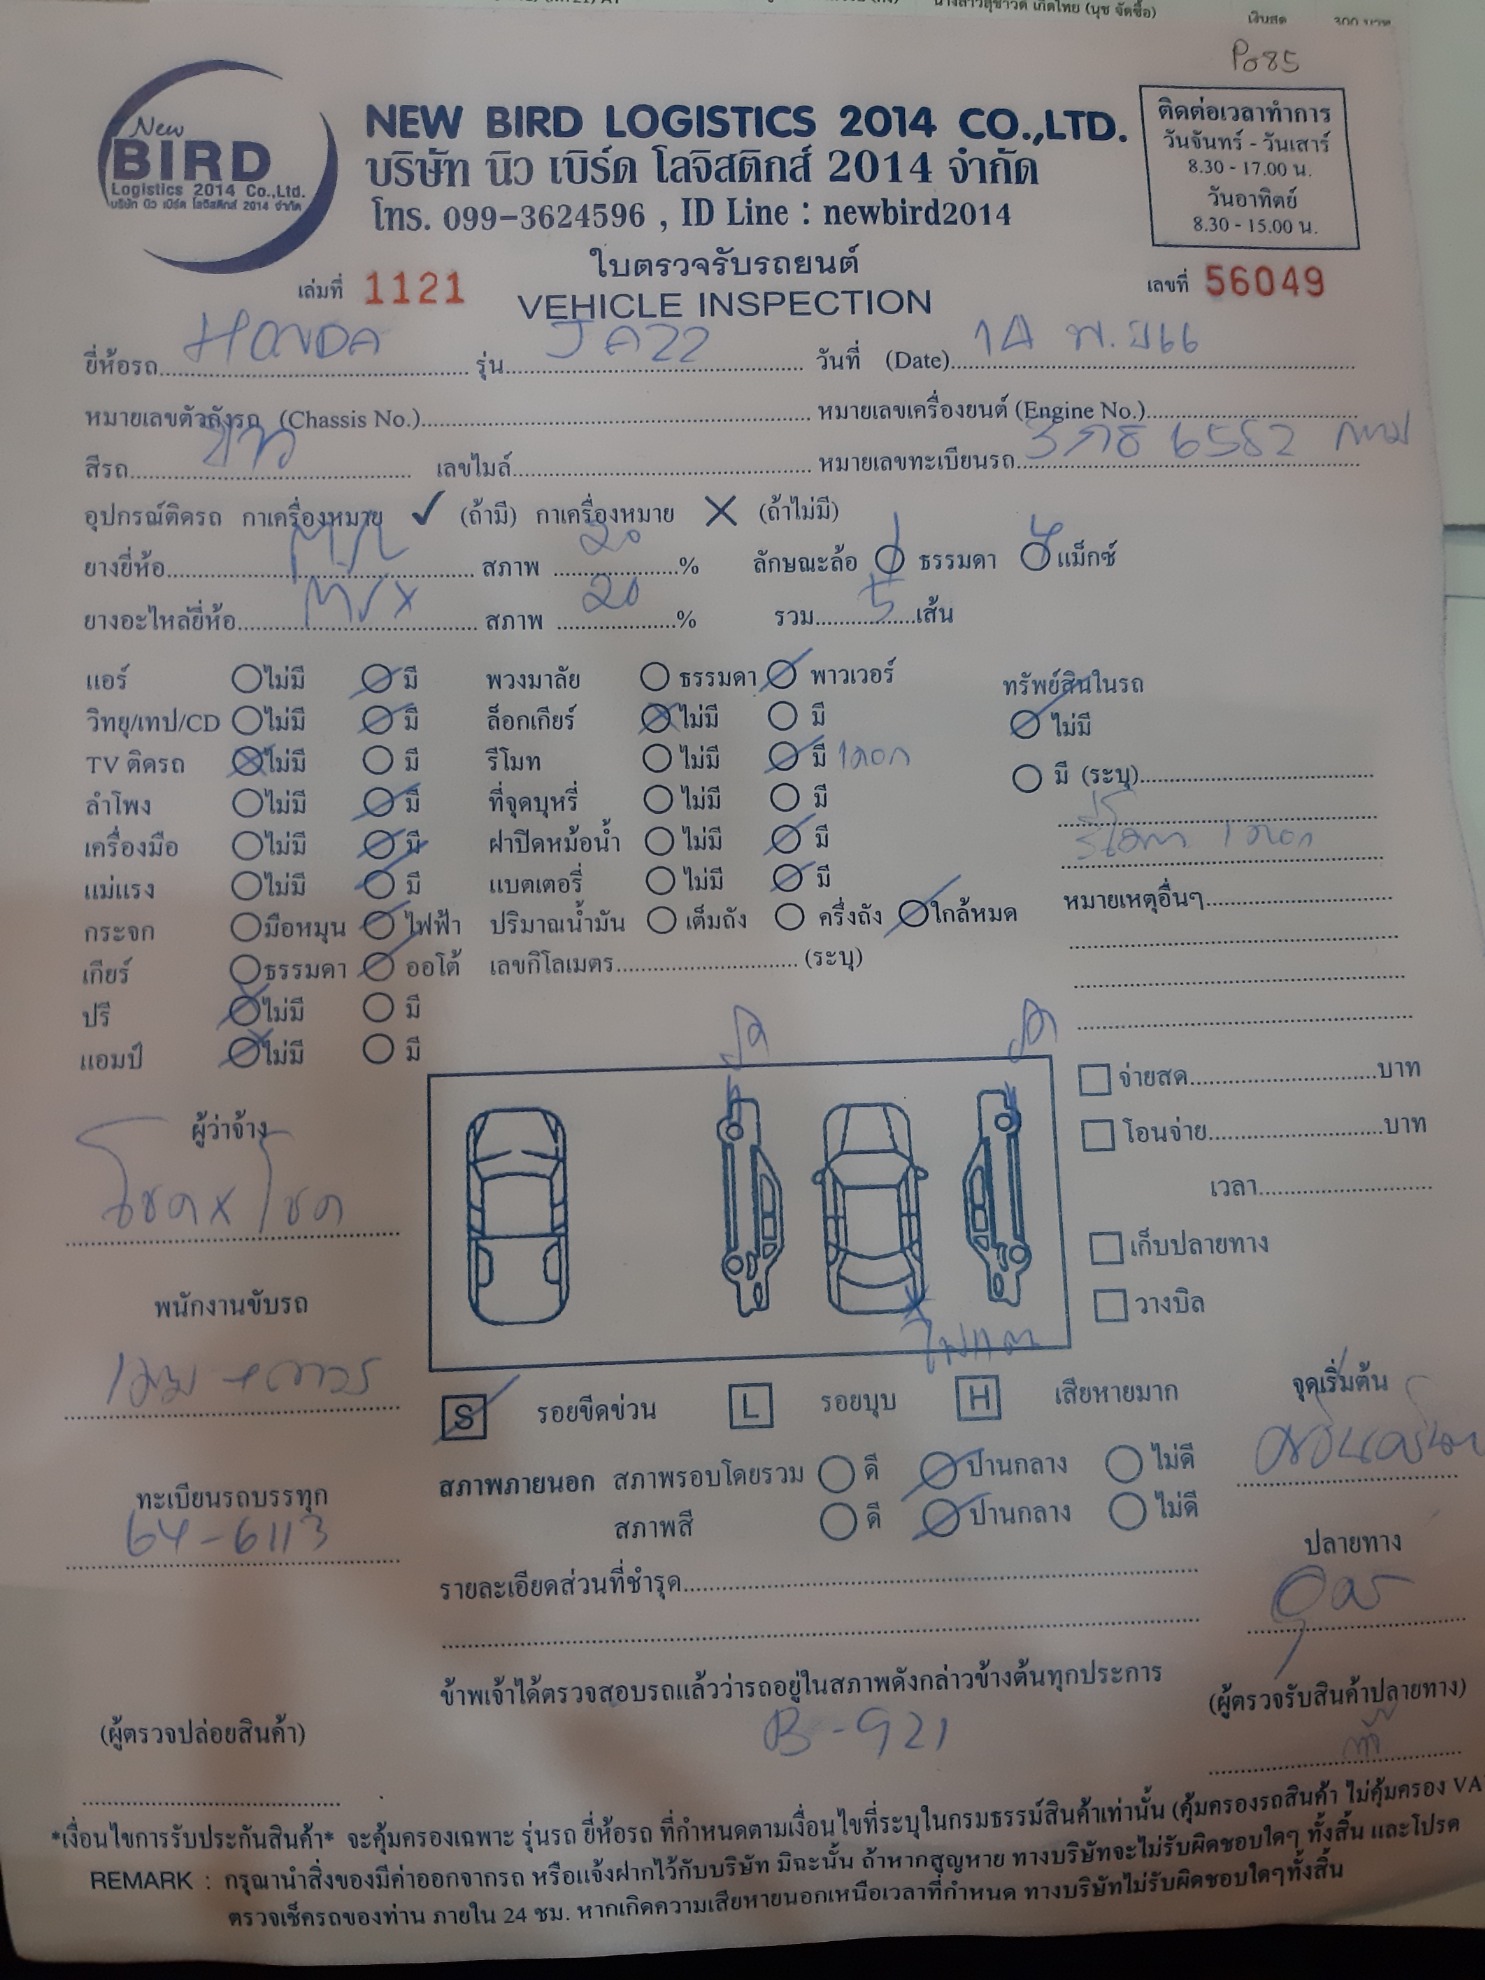 นางสาวสุชาวดี เกิดไทย (นุช จัดซื้อ)
เงินสด 300 บาท
Po85
New
BIRD
Logistics 2014 Co.,Ltd.
บริษัท นิว เบิร์ด โลจิสติกส์ 2014 จำกัด
NEW BIRD LOGISTICS 2014 CO.,LTD.
บริษัท นิว เบิร์ด โลจิสติกส์ 2014 จำกัด
โทร. 099-3624596 , ID Line : newbird2014
ติดต่อเวลาทำการ
วันจันทร์ - วันเสาร์
8.30 - 17.00 น.
วันอาทิตย์
8.30 - 15.00 น.
ใบตรวจรับรถยนต์
เล่มที่ 1121 VEHICLE INSPECTION เลขที่ 56049
ยี่ห้อรถ HONDA รุ่น JAZZ วันที่ (Date) 14 พ.ย 66
หมายเลขตัวถังรถ (Chassis No.) หมายเลขเครื่องยนต์ (Engine No.)
สีรถ ขาว เลขไมล์ หมายเลขทะเบียนรถ 6582 กทม
อุปกรณ์ติดรถ กาเครื่องหมาย ✓ (ถ้ามี) กาเครื่องหมาย ✗ (ถ้าไม่มี)
ยางยี่ห้อ สภาพ 20 % ลักษณะล้อ ธรรมดา แม็กซ์
ยางอะไหล่ยี่ห้อ สภาพ 20 % รวม 5 เส้น
แอร์ ไม่มี มี พวงมาลัย ธรรมดา พาวเวอร์ ทรัพย์สินในรถ
วิทยุ/เทป/CD ไม่มี มี ล็อกเกียร์ ไม่มี มี ไม่มี
TV ติดรถ ไม่มี มี รีโมท ไม่มี มี 1 ดอก มี (ระบุ)
ลำโพง ไม่มี มี ที่จุดบุหรี่ ไม่มี มี
เครื่องมือ ไม่มี มี ฝาปิดหม้อน้ำ ไม่มี มี รีโมท 1 ดอก
แม่แรง ไม่มี มี แบตเตอรี่ ไม่มี มี หมายเหตุอื่นๆ
กระจก มือหมุน ไฟฟ้า ปริมาณน้ำมัน เต็มถัง ครึ่งถัง ใกล้หมด
เกียร์ ธรรมดา ออโต้ เลขกิโลเมตร (ระบุ)
ปรี ไม่มี มี
แอมป์ ไม่มี มี
จ่ายสด บาท
โอนจ่าย บาท
เวลา
เก็บปลายทาง
วางบิล
ผู้ว่าจ้าง
โชค x โชค
พนักงานขับรถ
ไฟแตก
S รอยขีดข่วน L รอยบุบ H เสียหายมาก จุดเริ่มต้น
สภาพภายนอก สภาพรอบโดยรวม ดี ปานกลาง ไม่ดี
สภาพสี ดี ปานกลาง ไม่ดี
ทะเบียนรถบรรทุก
64-6113
ปลายทาง
อุดร
รายละเอียดส่วนที่ชำรุด
ข้าพเจ้าได้ตรวจสอบรถแล้วว่ารถอยู่ในสภาพดังกล่าวข้างต้นทุกประการ
B-921
(ผู้ตรวจปล่อยสินค้า) (ผู้ตรวจรับสินค้าปลายทาง)
*เงื่อนไขการรับประกันสินค้า* จะคุ้มครองเฉพาะ รุ่นรถ ยี่ห้อรถ ที่กำหนดตามเงื่อนไขที่ระบุในกรมธรรม์สินค้าเท่านั้น (คุ้มครองรถสินค้า ไม่คุ้มครอง VA
REMARK : กรุณานำสิ่งของมีค่าออกจากรถ หรือแจ้งฝากไว้กับบริษัท มิฉะนั้น ถ้าหากสูญหาย ทางบริษัทจะไม่รับผิดชอบใดๆ ทั้งสิ้น และโปรด
ตรวจเช็ครถของท่าน ภายใน 24 ชม. หากเกิดความเสียหายนอกเหนือเวลาที่กำหนด ทางบริษัทไม่รับผิดชอบใดๆทั้งสิ้น